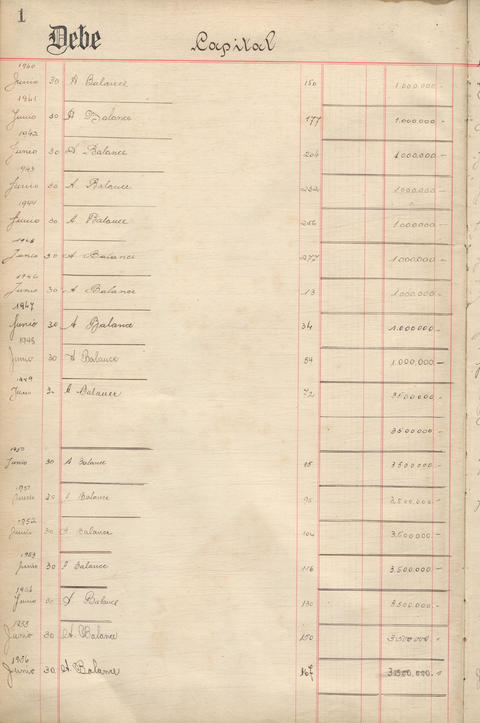 1
Debe Capital
1940
Junio 30 A Balance 150 1.000.000 -
1941
Junio 30 A Balance 177 1.000.000 -
1942
Junio 30 A Balance 204 1.000.000 -
1943
Junio 30 A. Balance 232 1.000.000 -
1944
Junio 30 A. Balance 256 1.000.000 -
1945
Junio 30 A Balance 277 1.000.000 -
1946
Junio 30 A Balance 13 1.000.000 -
1947
Junio 30 A Balance 34 1.000.000 -
1948
Junio 30 A Balance 54 1.000.000 -
1949
Junio 30 A Balance 72 3.500.000 -
3.500.000 -
1950
Junio 30 A Balance 85 3.500.000 -
1951
Junio 30 A Balance 95 3.500.000 -
1952
Junio 30 A Balance 104 3.500.000 -
1953
Junio 30 A Balance 116 3.500.000 -
1954
Junio 30 A Balance 130 3.500.000 -
1955
Junio 30 A. Balance 150 3.500.000 -
1956
Junio 30 A. Balance 167 3.500.000. -